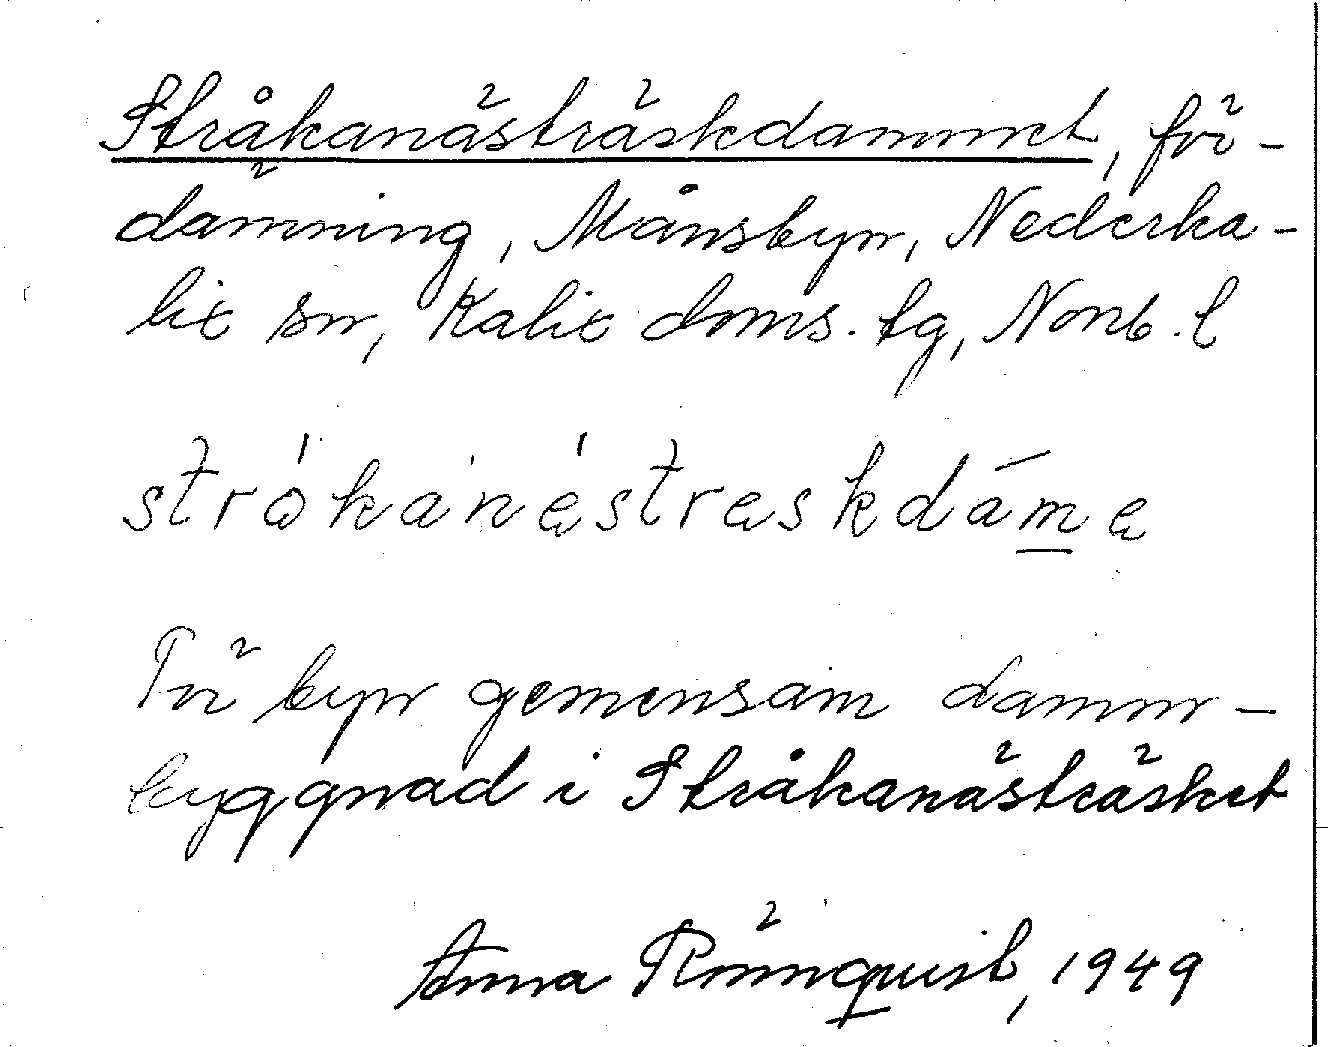 Stråkanästräskdammet, för-
dämning, Månsbyn, Nederka-
lix sn, Kalix doms. tg, Norrb. l
stråkanästräskdáma
byn gemensam damm-
byggnad i Stråkanästräsket
Anna Rönnquist, 1949